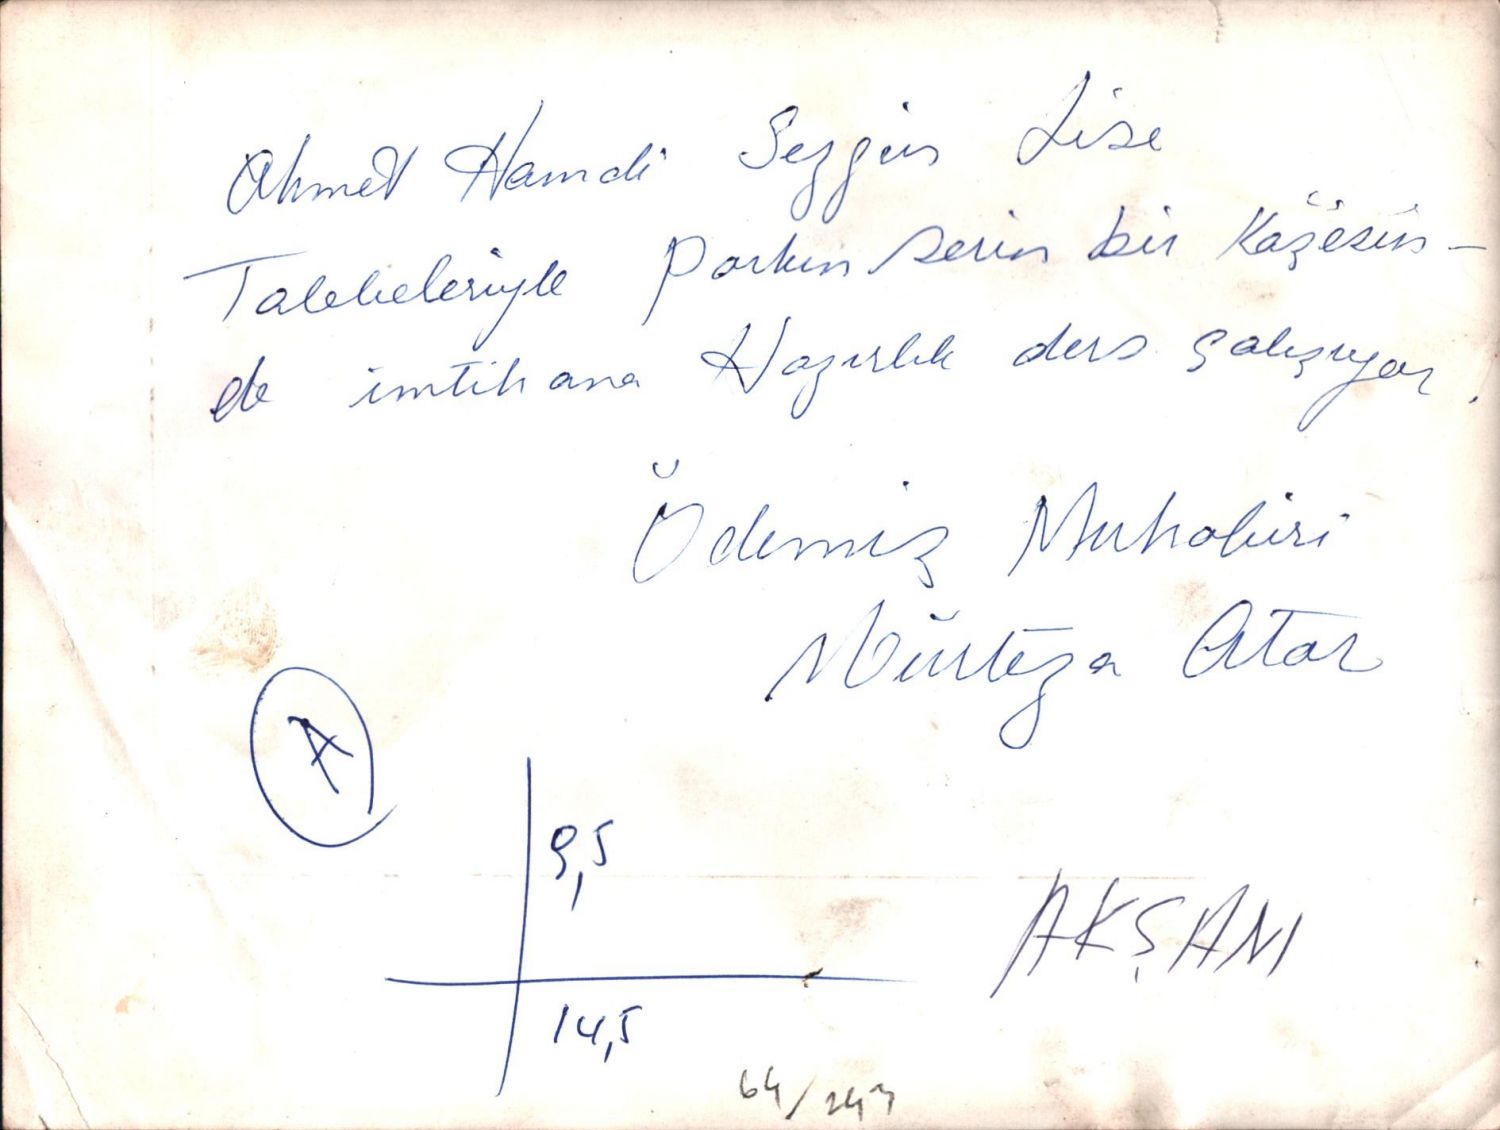 Ahmet Hamdi Sezgin Lise
Talebeleriyle Parkın serin bir Köşesin-
de imtihana Hazırlık ders çalışıyor.
Ödemiş Muhabiri
Mürteza Atar
A
9,5
14,5
AKŞAM
64/243